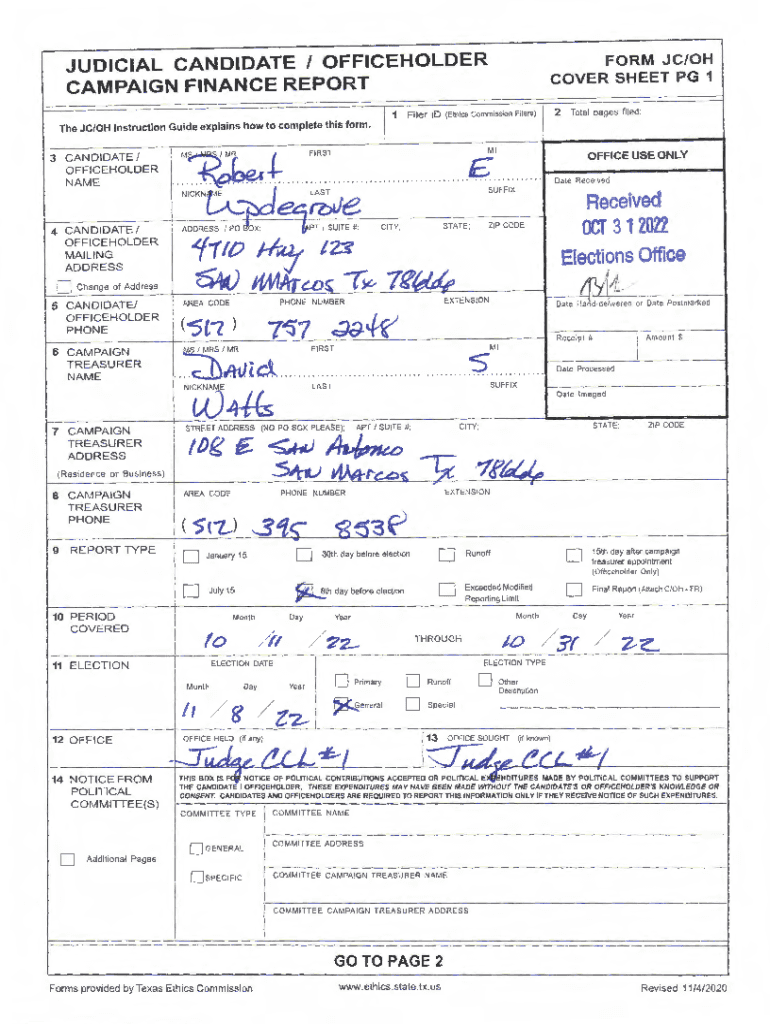 JUDICIAL CANDIDATE / OFFICEHOLDER
CAMPAIGN FINANCE REPORT
FORM JC/OH
COVER SHEET PG 1
The JC/OH Instruction Guide explains how to complete this form.
1 Filer ID (Ethics Commission Filers)
2 Total pages filed:
3 CANDIDATE / OFFICEHOLDER NAME
MS / MRS / MR FIRST MI
Robert E
NICKNAME LAST SUFFIX
Updegrove
OFFICE USE ONLY
Date Received
Received
OCT 31 2022
Elections Office
4 CANDIDATE / OFFICEHOLDER MAILING ADDRESS
Change of Address
ADDRESS / PO BOX; APT / SUITE #; CITY; STATE; ZIP CODE
4710 Hwy 123
SAN MARCOS Tx 78666
Date Hand-delivered or Date Postmarked
5 CANDIDATE/ OFFICEHOLDER PHONE
AREA CODE PHONE NUMBER EXTENSION
(512) 757 2248
Receipt # Amount $
6 CAMPAIGN TREASURER NAME
MS / MRS / MR FIRST MI
David S
NICKNAME LAST SUFFIX
Watts
Date Processed
Date Imaged
7 CAMPAIGN TREASURER ADDRESS
(Residence or Business)
STREET ADDRESS (NO PO BOX PLEASE); APT / SUITE #; CITY; STATE; ZIP CODE
108 E SAN Antonio
SAN MARCOS Tx 78666
8 CAMPAIGN TREASURER PHONE
AREA CODE PHONE NUMBER EXTENSION
(512) 395 8538
9 REPORT TYPE
January 15
30th day before election
Runoff
15th day after campaign treasurer appointment (Officeholder Only)
July 15
8th day before election
Exceeded Modified Reporting Limit
Final Report (Attach C/OH - FR)
10 PERIOD COVERED
Month Day Year Month Day Year
10 / 11 / 22 THROUGH 10 / 31 / 22
11 ELECTION
ELECTION DATE ELECTION TYPE
Month Day Year
11 / 8 / 22
Primary Runoff Other Description
General Special
12 OFFICE
OFFICE HELD (if any)
Judge CCL #1
13 OFFICE SOUGHT (if known)
Judge CCL #1
14 NOTICE FROM POLITICAL COMMITTEE(S)
Additional Pages
THIS BOX IS FOR NOTICE OF POLITICAL CONTRIBUTIONS ACCEPTED OR POLITICAL EXPENDITURES MADE BY POLITICAL COMMITTEES TO SUPPORT
THE CANDIDATE / OFFICEHOLDER. THESE EXPENDITURES MAY HAVE BEEN MADE WITHOUT THE CANDIDATE'S OR OFFICEHOLDER'S KNOWLEDGE OR
CONSENT. CANDIDATES AND OFFICEHOLDERS ARE REQUIRED TO REPORT THIS INFORMATION ONLY IF THEY RECEIVE NOTICE OF SUCH EXPENDITURES.
COMMITTEE TYPE
GENERAL
SPECIFIC
COMMITTEE NAME
COMMITTEE ADDRESS
COMMITTEE CAMPAIGN TREASURER NAME
COMMITTEE CAMPAIGN TREASURER ADDRESS
GO TO PAGE 2
Forms provided by Texas Ethics Commission www.ethics.state.tx.us Revised 11/4/2020